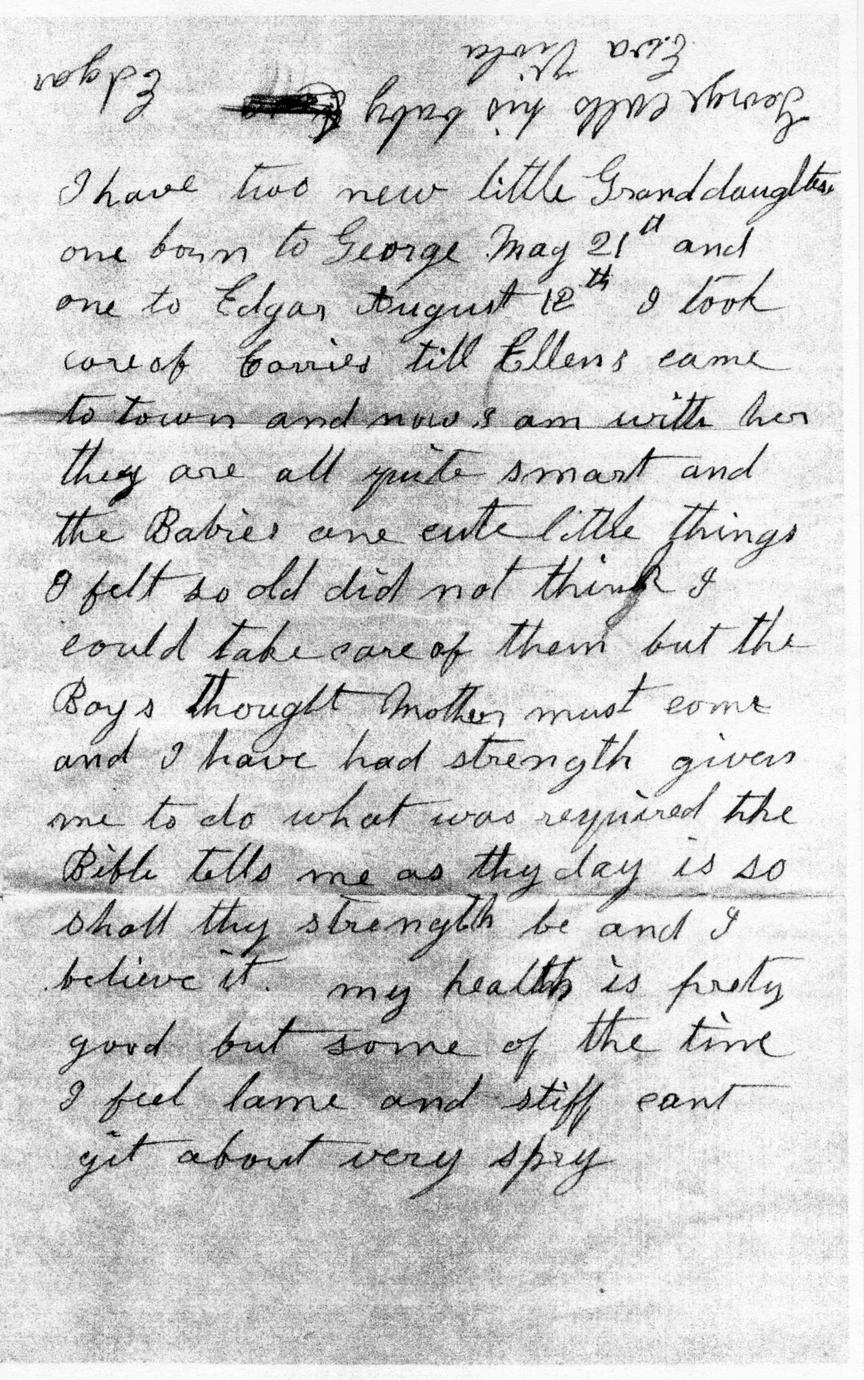 George calls his baby Edgar
Eva Viola
I have two new little Granddaughters
one born to George May 21st and
one to Edgar August 12th I took
care of Carries till Ellens came
to town and now I am with her
they are all quite smart and
the Babies are cute little things
I felt so old did not think I
could take care of them but the
Boys thought Mother must come
and I have had strength given
me to do what was required the
Bible tells me as thy day is so
shall thy strength be and I
believe it. my health is prety
good but some of the time
I feel lame and stiff cant
git about very spry